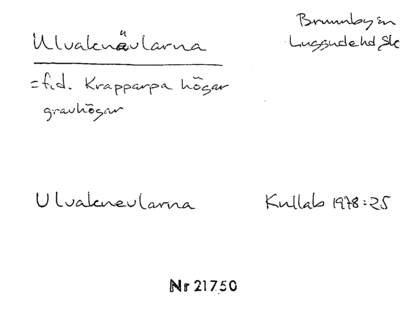 Ulvaknävlarna
Brunnby sn
Luggude hd Sk
= f.d. Krapparpa högar
gravhögar
Ulvaknevlarna
Kullab 1978:25
Nr 21750